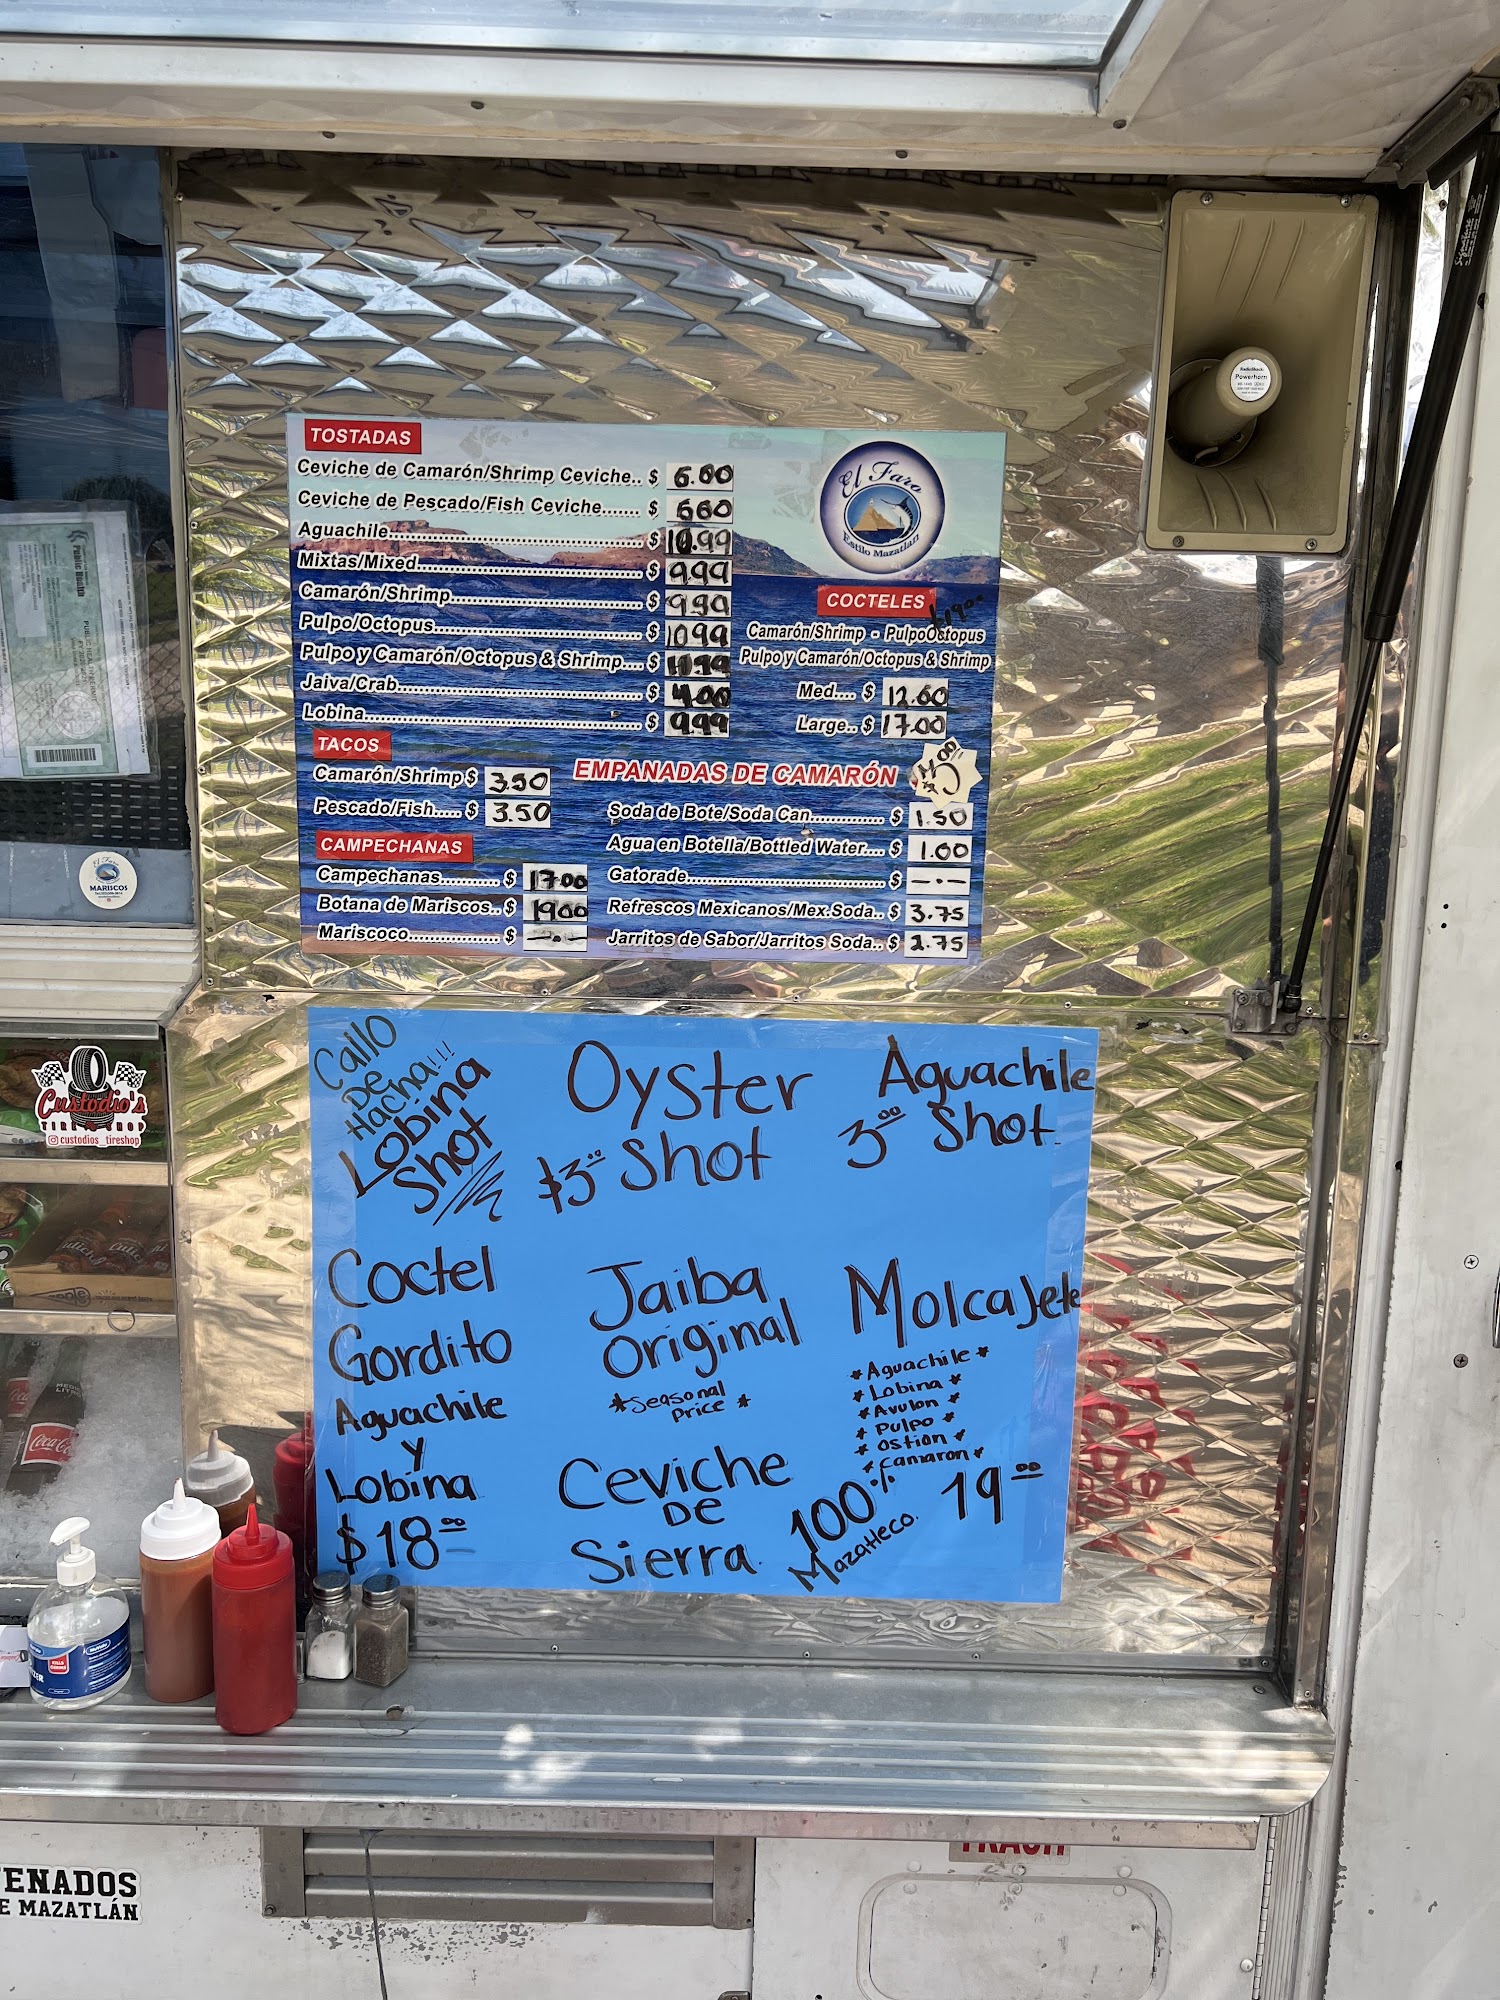 TOSTADAS
Ceviche de Camarón/Shrimp Ceviche.. $ 6.00
Ceviche de Pescado/Fish Ceviche....... $ 600
Aguachile................................................ $ 10.99
Mixtas/Mixed.......................................... $ 9.99
Camarón/Shrimp.................................... $ 9.99
Pulpo/Octopus....................................... $ 10.99
Pulpo y Camarón/Octopus & Shrimp.... $ 10.99
Jaiva/Crab.............................................. $ 4.00
Lobina.................................................... $ 9.99
TACOS
Camarón/Shrimp $ 3.50
Pescado/Fish..... $ 3.50
CAMPECHANAS
Campechanas.......... $ 17.00
Botana de Mariscos.. $ 19.00
Mariscoco................. $ -.-
El Faro
Estilo Mazatlan
COCTELES
Camarón/Shrimp - PulpoOctopus
Pulpo y Camarón/Octopus & Shrimp
Med.... $ 12.60
Large.. $ 17.00
EMPANADAS DE CAMARÓN
Soda de Bote/Soda Can............. $ 1.50
Agua en Botella/Bottled Water.... $ 1.00
Gatorade................................... $ -.-
Refrescos Mexicanos/Mex.Soda.. $ 3.75
Jarritos de Sabor/Jarritos Soda.. $ 2.75
RadioShack
Powerhorn
Callo
De
Hacha!!!
Lobina
Shot
Oyster
$3.00 Shot
Aguachile
3.00 Shot
Coctel
Gordito
Aguachile
y
Lobina
$18.00
Jaiba
Original
*Seasonal
Price *
Ceviche
De
Sierra
Molcajete
*Aguachile*
*Lobina*
*Avulon*
*Pulpo*
*ostion*
*Camaron*
100%
Mazatleco.
19.00
El Faro
MARISCOS
Custodio's
TIRE SHOP
custodios_tireshop
Coca-Cola
ENADOS
E MAZATLÁN
TRASH